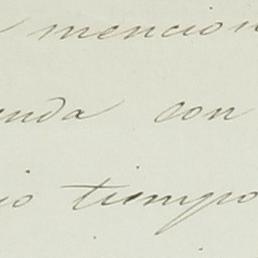 mencion
enda con
io tiempo